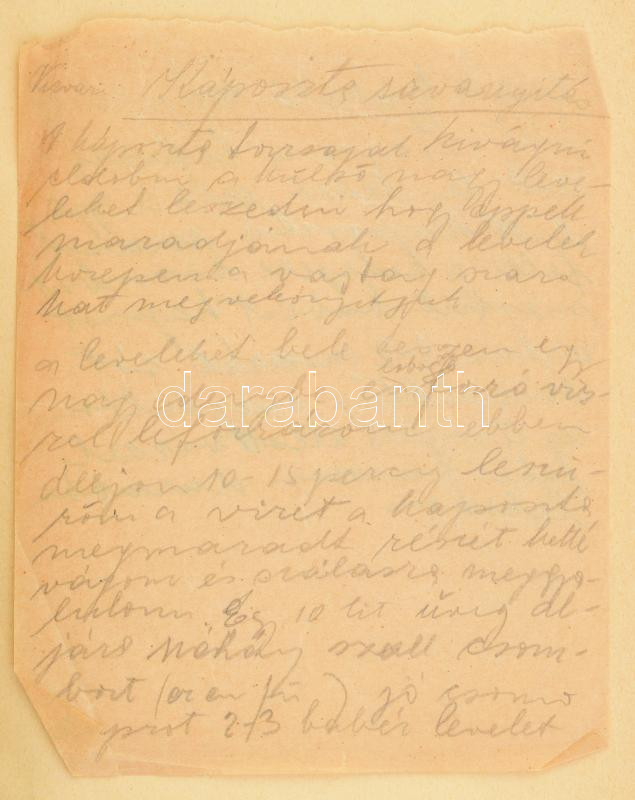 Káposzta savanyitás
A káposzta torzsáját kivágni
eldobni a külső nagy leve-
leket leszedni hog éppek
maradjának a levelek
közepén a vastag szára
kat megvékonyitjuk
a leveleket bele teszem egy
nag forró viz-
zel leforrázom ebben
álljon 10-15 percig leszü-
röm a vizet a káposzta
megmaradt részét ketté
vágom és szálasra meggya-
lulom. Eg 10 lit üveg al-
jára néhány szall csom-
bort ( ) jó csomo
2-3 babér levelet
darabanth